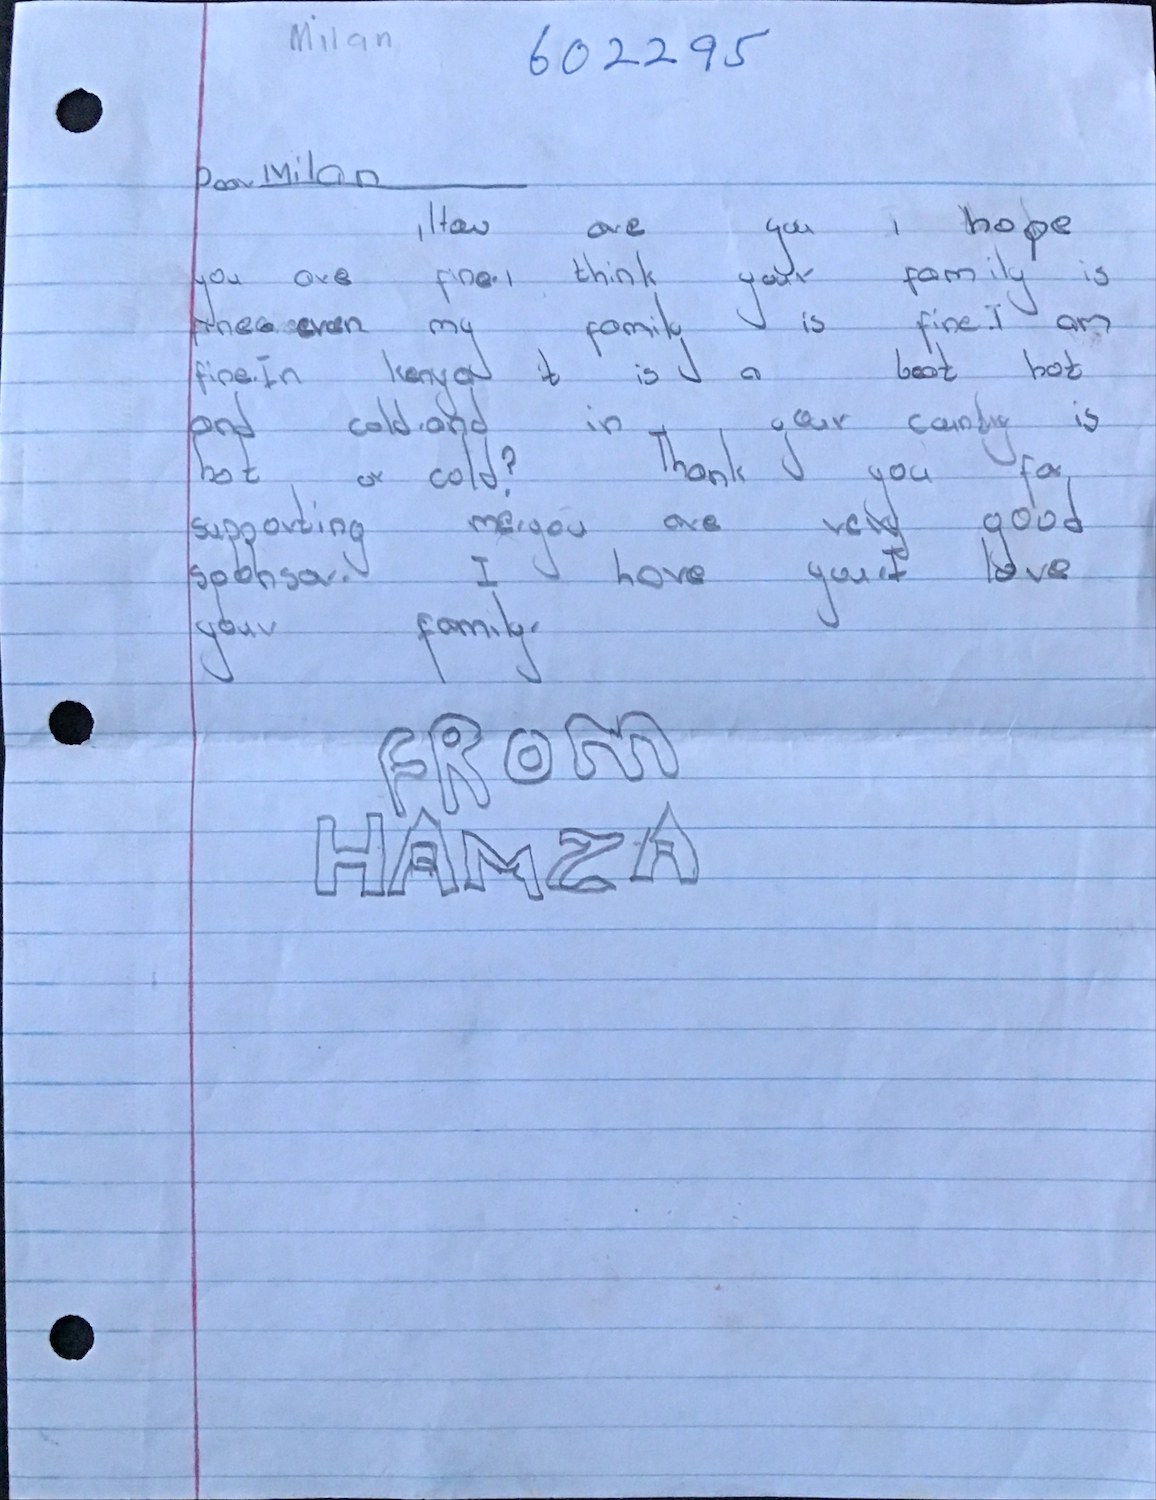 Milan 602295
Dear Milan
,How are you i hope
you are fine.i think your family is
fine even my family is fine.I am
fine.In kenya it is a beat hot
and cold.and in your country is
hot or cold? Thank you for
supporting me.you are very good
sponsor. I have you.I love
your family.
FROM
HAMZA